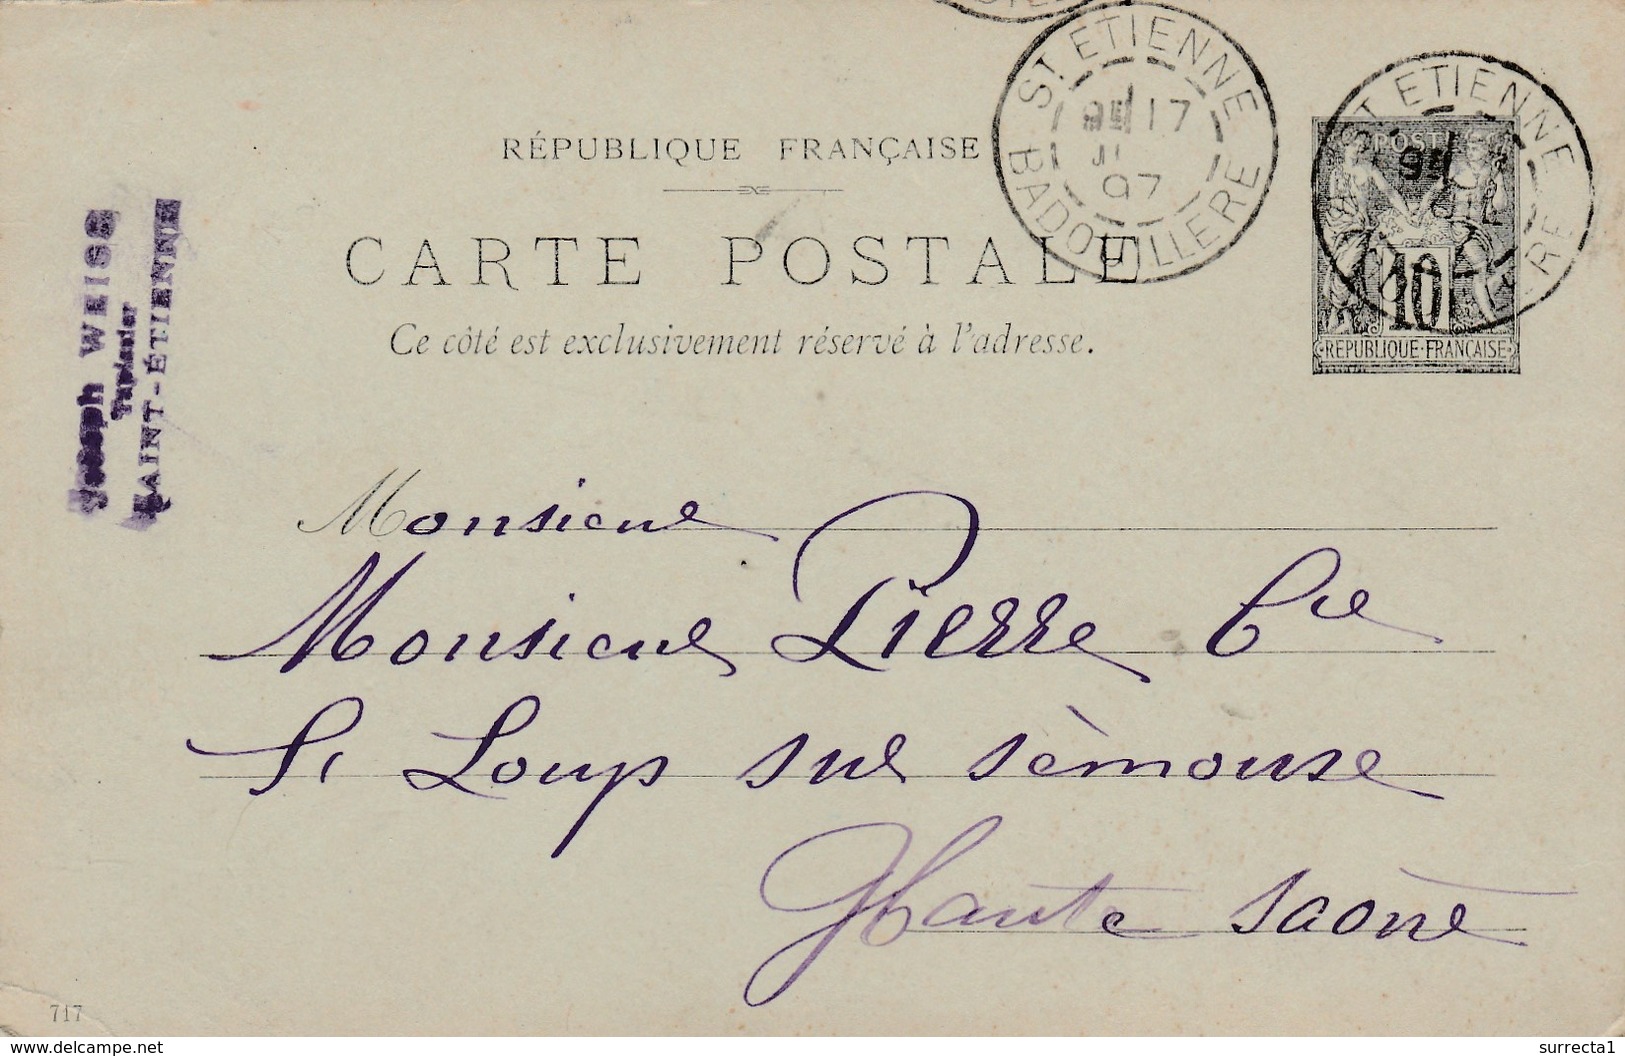 RÉPUBLIQUE FRANÇAISE
CARTE POSTALE
Ce côté est exclusivement réservé à l'adresse.
St ETIENNE
17
97
BADOUILLERE
St ETIENNE
POSTES
10
REPUBLIQUE-FRANÇAISE
Joseph WEISS
Tapissier
SAINT-ÉTIENNE
Monsieur
Monsieur Pierre
St Loup sur Sèmouse
Haute Saône
717
www.delcampe.net
surrecta1